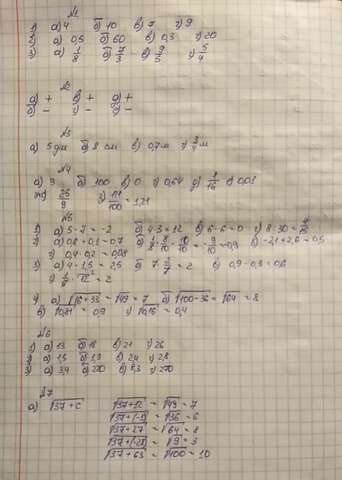 №1
1) а) 4 б) 10 в) 7 г) 9
2) а) 0,5 б) 60 в) 0,3 г) 20
3) а) 1/8 б) 7/3 в) 9/5 г) 5/4
№2
а) + в) + д) +
б) - г) -
№3
а) 5 дм б) 8 см в) 0,7 м г) 3/4 м
№4
а) 9 б) 100 в) 0 г) 0,64 д) 1/16 е) 0,01
25/9 з) 121/100 = 1,21
№5
1) а) 5-7 = -2 б) 4·3 = 12 в) 6-6 = 0 г)
2) а) 0,6+0,1 = 0,7 = 0,5
г) 0,4·0,2 = 0,08
3) а) 4-1,5 = 2,5 б) = 2 в) 0,9-0,3 = 0,6
= 2
4) а) √16+33 = √49 = 7 б) √100-36 = √64 = 8
в) √0,81 = 0,9 г) √0,16 = 0,4
№6
1) а) 13 б) 18 в) 21 г) 26
2) а) 1,5 б) 1,9 в) 2,4 г) 2,8
3) а) 3,4 б) 220 в) г) 270
№7
а) √37+c √37+12 = √49 = 7
√37+(-1) = √36 = 6
√37+27 = √64 = 8
√37+(-28) = √9 = 3
√37+63 = √100 = 10